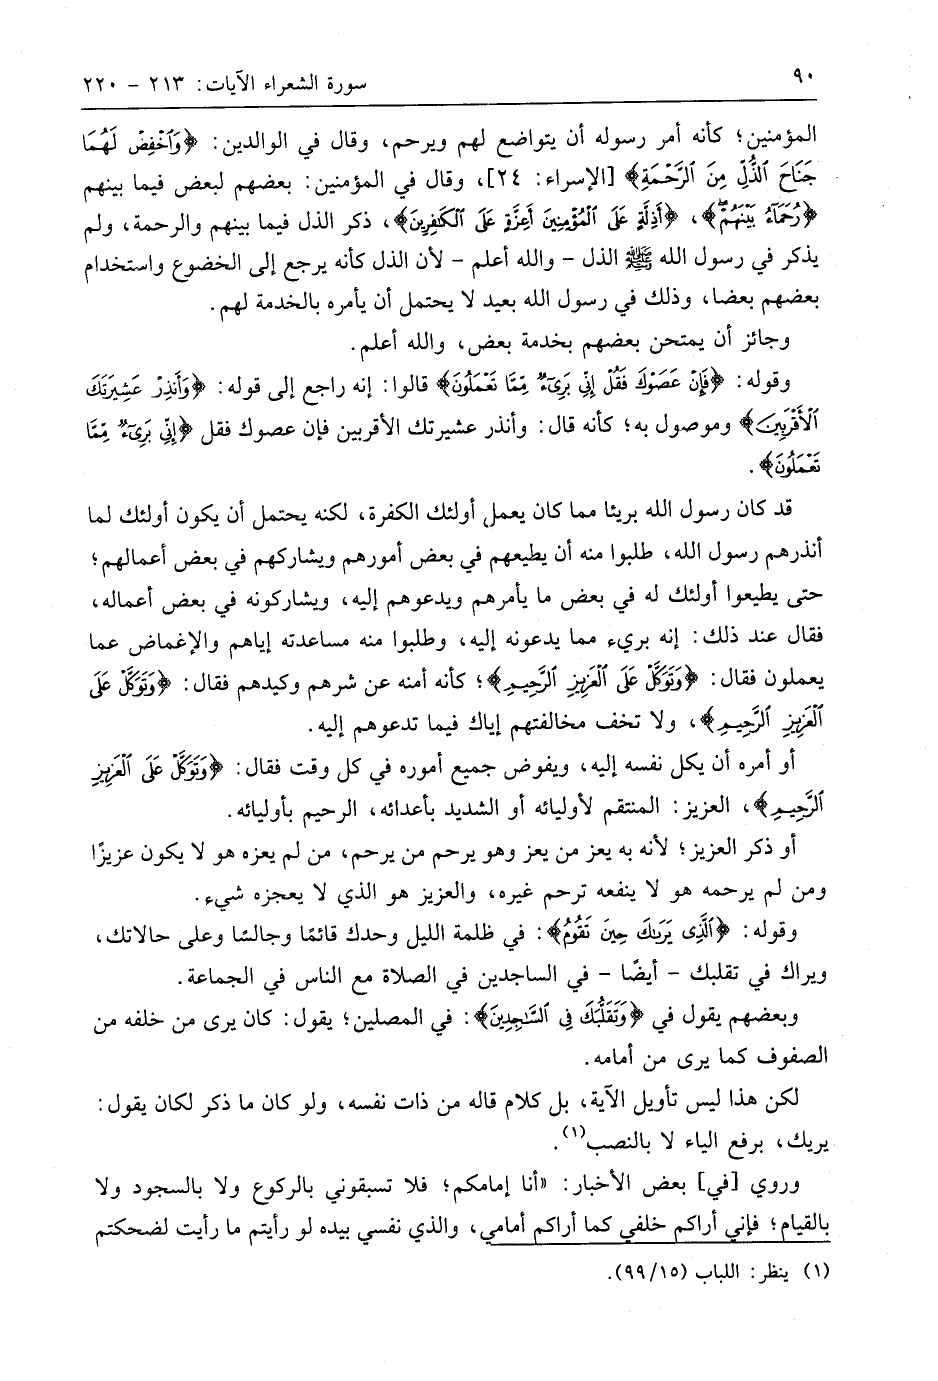 ٩٠
سورة الشعراء الآيات: ٢١٣ - ٢٢٠
المؤمنين؛ كأنه أمر رسوله أن يتواضع لهم ويرحم، وقال في الوالدين: ﴿وَٱخْفِضْ لَهُمَا
جَنَاحَ ٱلذُّلِّ مِنَ ٱلرَّحْمَةِ﴾ [الإسراء: ٢٤]، وقال في المؤمنين: بعضهم لبعض فيما بينهم
﴿رُحَمَآءُ بَيْنَهُمْ﴾، ﴿أَذِلَّةٍ عَلَى ٱلْمُؤْمِنِينَ أَعِزَّةٍ عَلَى ٱلْكَٰفِرِينَ﴾، ذكر الذل فيما بينهم والرحمة، ولم
يذكر في رسول الله ﷺ الذل - والله أعلم - لأن الذل كأنه يرجع إلى الخضوع واستخدام
بعضهم بعضا، وذلك في رسول الله بعيد لا يحتمل أن يأمره بالخدمة لهم.
وجائز أن يمتحن بعضهم بخدمة بعض، والله أعلم.
وقوله: ﴿فَإِنْ عَصَوْكَ فَقُلْ إِنِّى بَرِىٓءٌ مِّمَّا تَعْمَلُونَ﴾ قالوا: إنه راجع إلى قوله: ﴿وَأَنذِرْ عَشِيرَتَكَ
ٱلْأَقْرَبِينَ﴾ وموصول به؛ كأنه قال: وأنذر عشيرتك الأقربين فإن عصوك فقل ﴿إِنِّى بَرِىٓءٌ مِّمَّا
تَعْمَلُونَ﴾.
قد كان رسول الله بريئا مما كان يعمل أولئك الكفرة، لكنه يحتمل أن يكون أولئك لما
أنذرهم رسول الله، طلبوا منه أن يطيعهم في بعض أمورهم ويشاركهم في بعض أعمالهم؛
حتى يطيعوا أولئك له في بعض ما يأمرهم ويدعوهم إليه، ويشاركونه في بعض أعماله،
فقال عند ذلك: إنه بريء مما يدعونه إليه، وطلبوا منه مساعدته إياهم والإغماض عما
يعملون فقال: ﴿وَتَوَكَّلْ عَلَى ٱلْعَزِيزِ ٱلرَّحِيمِ﴾؛ كأنه أمنه عن شرهم وكيدهم فقال: ﴿وَتَوَكَّلْ عَلَى
ٱلْعَزِيزِ ٱلرَّحِيمِ﴾، ولا تخف مخالفتهم إياك فيما تدعوهم إليه.
أو أمره أن يكل نفسه إليه، ويفوض جميع أموره في كل وقت فقال: ﴿وَتَوَكَّلْ عَلَى ٱلْعَزِيزِ
ٱلرَّحِيمِ﴾، العزيز: المنتقم لأوليائه أو الشديد بأعدائه، الرحيم بأوليائه.
أو ذكر العزيز؛ لأنه به يعز من يعز وهو يرحم من يرحم، من لم يعزه هو لا يكون عزيزًا
ومن لم يرحمه هو لا ينفعه ترحم غيره، والعزيز هو الذي لا يعجزه شيء.
وقوله: ﴿ٱلَّذِى يَرَىٰكَ حِينَ تَقُومُ﴾: في ظلمة الليل وحدك قائمًا وجالسًا وعلى حالاتك،
ويراك في تقلبك - أيضًا - في الساجدين في الصلاة مع الناس في الجماعة.
وبعضهم يقول في ﴿وَتَقَلُّبَكَ فِى ٱلسَّٰجِدِينَ﴾: في المصلين؛ يقول: كان يرى من خلفه من
الصفوف كما يرى من أمامه.
لكن هذا ليس تأويل الآية، بل كلام قاله من ذات نفسه، ولو كان ما ذكر لكان يقول:
يريك، برفع الياء لا بالنصب(١).
وروي [في] بعض الأخبار: «أنا إمامكم؛ فلا تسبقوني بالركوع ولا بالسجود ولا
بالقيام؛ فإني أراكم خلفي كما أراكم أمامي، والذي نفسي بيده لو رأيتم ما رأيت لضحكتم
(١) ينظر: اللباب (٩٩/١٥).